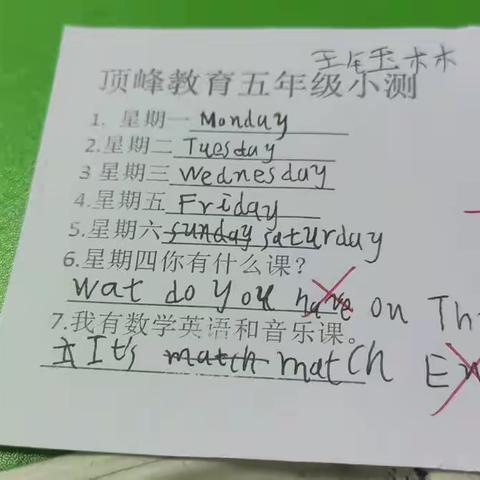 顶峰教育五年级小测
1. 星期一 Monday
2.星期二 Tuesday
3 星期三 Wednesday
4.星期五 Friday
5.星期六 sunday saturday
6.星期四你有什么课?
wat do you have on Th
7.我有数学英语和音乐课。
It's match match E